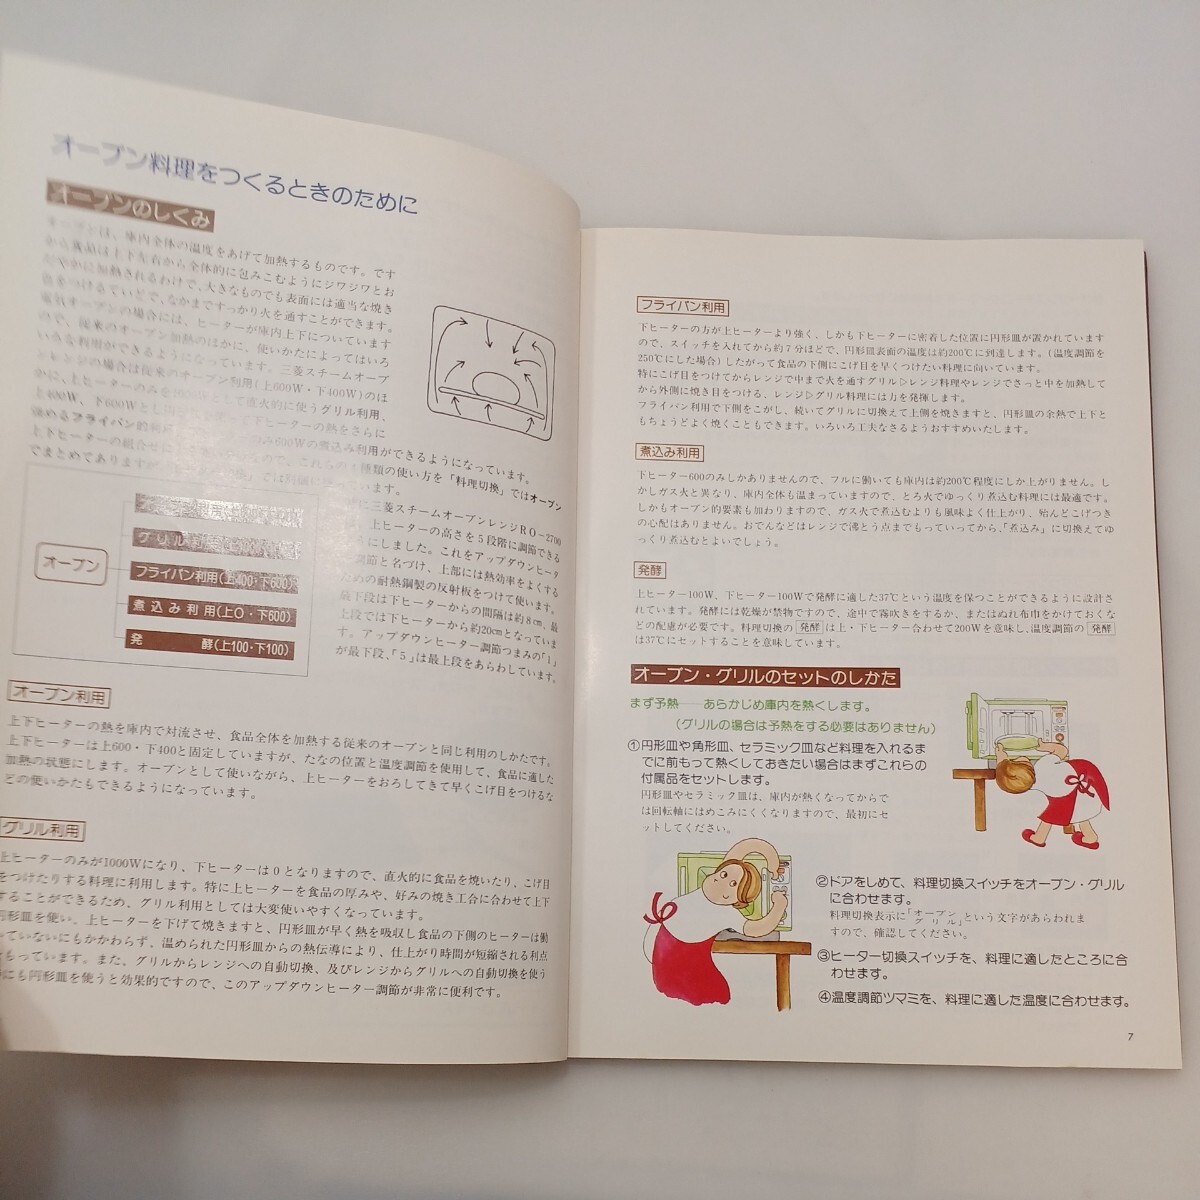 オーブン料理をつくるときのために
オーブンのしくみ
オーブンは、庫内全体の温度をあげて加熱するものです。です
から食品は上下左右から全体的に包みこむようにジワジワとお
だやかに加熱されるわけで、大きなものでも表面には適当な焼き
色をつけるていどで、なかまですっかり火を通すことができます。
電気オーブンの場合には、ヒーターが庫内上下についています
ので、従来のオーブン加熱のほかに、使いかたによってはいろ
いろな利用ができるようになっています。三菱スチームオーブ
ンレンジの場合は従来のオーブン利用(上600W・下400W)のほ
かに、上ヒーターのみを1000Wとして直火的に使うグリル利用、
上400W、下600Wとし
下ヒーターの熱をさらに
強めるフライパン的利用
のみ600Wの煮込み利用ができるようになっています。
上下ヒーターの組合せ
ので、これらの
種類の使い方を「料理切換」ではオーブン
でまとめてあります
では
います。
オーブン
グリル利用
フライパン利用(上400・下600)
煮込み利用(上0・下600)
発 酵(上100・下100)
三菱スチームオーブンレンジRO-2700
上ヒーターの高さを5段階に調節できる
にしました。これをアップダウンヒータ
調節と名づけ、上部には熱効率をよくする
ための耐熱鋼製の反射板をつけて使います。
最下段は下ヒーターからの間隔は約8cm、最
上段では下ヒーターから約20cmとなっていま
す。アップダウンヒーター調節つまみの「1」
が最下段、「5」は最上段をあらわしています。
オーブン利用
上下ヒーターの熱を庫内で対流させ、食品全体を加熱する従来のオーブンと同じ利用のしかたです。
上下ヒーターは上600・下400と固定していますが、たなの位置と温度調節を使用して、食品に適した
加熱の状態にします。オーブンとして使いながら、上ヒーターをおろしてきて早くこげ目をつけるな
どの使いかたもできるようになっています。
グリル利用
上ヒーターのみが1000Wになり、下ヒーターは0となりますので、直火的に食品を焼いたり、こげ目
をつけたりする料理に利用します。特に上ヒーターを食品の厚みや、好みの焼き工合に合わせて上下
することができるため、グリル利用としては大変使いやすくなっています。
円形皿を使い、上ヒーターを下げて焼きますと、円形皿が早く熱を吸収し食品の下側のヒーターは働
いていないにもかかわらず、温められた円形皿からの熱伝導により、仕上がり時間が短縮される利点
をもっています。また、グリルからレンジへの自動切換、及びレンジからグリルへの自動切換を使う
にも円形皿を使うと効果的ですので、このアップダウンヒーター調節が非常に便利です。
フライパン利用
下ヒーターの方が上ヒーターより強く、しかも下ヒーターに密着した位置に円形皿が置かれています
ので、スイッチを入れてから約7分ほどで、円形皿表面の温度は約200℃に到達します。(温度調節を
250℃にした場合)したがって食品の下側にこげ目を早くつけたい料理に向いています。
特にこげ目をつけてからレンジで中まで火を通すグリル▷レンジ料理やレンジでさっと中を加熱して
から外側に焼き目をつける、レンジ▷グリル料理には力を発揮します。
フライパン利用で下側をこがし、続いてグリルに切換えて上側を焼きますと、円形皿の余熱で上下と
もちょうどよく焼くこともできます。いろいろ工夫なさるようおすすめいたします。
煮込み利用
下ヒーター600のみしかありませんので、フルに働いても庫内は約200℃程度にしか上がりません。し
かしガス火と異なり、庫内全体も温まっていますので、とろ火でゆっくり煮込む料理には最適です。
しかもオーブン的要素も加わりますので、ガス火で煮込むよりも風味よく仕上がり、殆んどこげつき
の心配はありません。おでんなどはレンジで沸とう点までもっていってから、「煮込み」に切換えてゆ
っくり煮込むとよいでしょう。
発酵
上ヒーター100W、下ヒーター100Wで発酵に適した37℃という温度を保つことができるように設計さ
れています。発酵には乾燥が禁物ですので、途中で霧吹きをするか、またはぬれ布巾をかけておくな
どの配慮が必要です。料理切換の 発酵 は上・下ヒーター合わせて200Wを意味し、温度調節の 発酵
は37℃にセットすることを意味しています。
オーブン・グリルのセットのしかた
まず予熱――あらかじめ庫内を熱くします。
(グリルの場合は予熱をする必要はありません)
①円形皿や角形皿、セラミック皿など料理を入れるま
でに前もって熱くしておきたい場合はまずこれらの
付属品をセットします。
円形皿やセラミック皿は、庫内が熱くなってからで
は回転軸にはめこみにくくなりますので、最初にセ
ットしてください。
②ドアをしめて、料理切換スイッチをオーブン・グリル
に合わせます。
料理切換表示に「オーブン グリル」という文字があらわれま
すので、確認してください。
③ヒーター切換スイッチを、料理に適したところに合
わせます。
④温度調節ツマミを、料理に適した温度に合わせます。
7